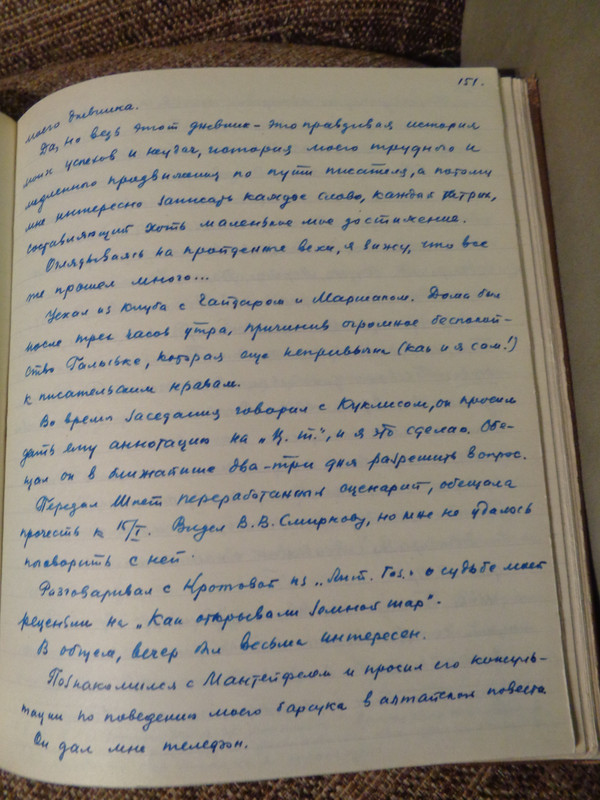 151.
моего дневника.
Да, но ведь этот дневник - это правдивая история
моих успехов и неудач, история моего трудного и
медленного продвижения по пути писателя, а потому
мне интересно записать каждое слово, каждый штрих,
составляющий хоть маленькое мое достижение.
Оглядываясь на пройденные вехи, я вижу, что все
же прошел много...
Уехал из клуба с Гайдаром и Маршаком. Дома был
после трех часов утра, причинив огромное беспокой-
ство Галюське, которая еще непривычна (как и я сам!)
к писательским нравам.
Во время заседания говорил с Куклисом, он просил
дать ему аннотацию на „Ч. т.", и я это сделаю. Обе-
щал он в ближайшие два-три дня разрешить вопрос.
Передал Шпет переработанный сценарий, обещала
прочесть к 15/I. Видел В.В. Смирнову, но мне не удалось
поговорить с ней.
Разговаривал с Кротовой из „Лит. Газ." о судьбе моей
рецензии на „Как открывали земной шар".
В общем, вечер был весьма интересен.
Познакомился с Мантейфелем и просил его консуль-
тации по поведению моего барсука в алтайской повести
Он дал мне телефон.